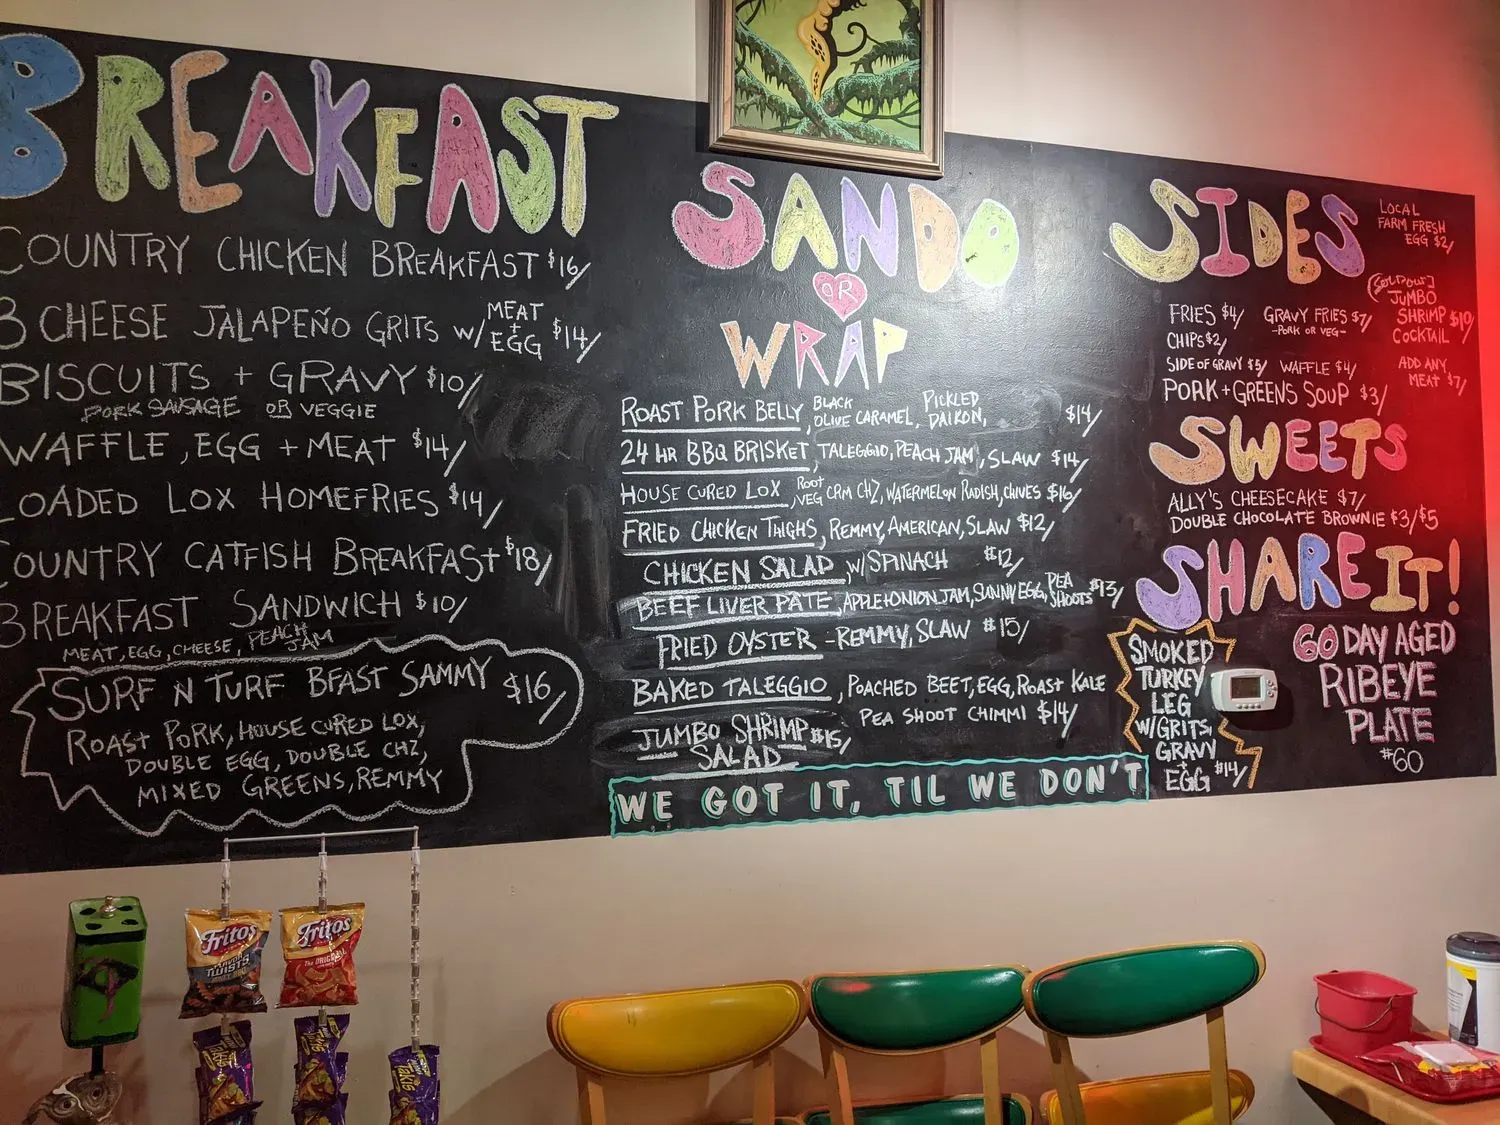 BREAKFAST
COUNTRY CHICKEN BREAKFAST $16/
3 CHEESE JALAPEÑO GRITS W/ MEAT + EGG $14/
BISCUITS + GRAVY $10/
PORK SAUSAGE OR VEGGIE
WAFFLE, EGG + MEAT $14/
LOADED LOX HOMEFRIES $14/
COUNTRY CATFISH BREAKFAST $18/
BREAKFAST SANDWICH $10/
MEAT, EGG, CHEESE, PEACH JAM
SURF N TURF BFAST SAMMY $16/
ROAST PORK, HOUSE CURED LOX,
DOUBLE EGG, DOUBLE CHZ,
MIXED GREENS, REMMY
SANDO
OR
WRAP
ROAST PORK BELLY, BLACK OLIVE CARAMEL, PICKLED DAIKON, $14/
24 HR BBQ BRISKET, TALEGGIO, PEACH JAM, SLAW $14/
HOUSE CURED LOX, ROOT VEG CRM CHZ, WATERMELON RADISH, CHIVES $16/
FRIED CHICKEN THIGHS, REMMY, AMERICAN, SLAW $12/
CHICKEN SALAD, W/ SPINACH $12/
BEEF LIVER PATE, APPLE+ONION JAM, SUNNY EGG, PEA SHOOTS $13/
FRIED OYSTER - REMMY, SLAW $15/
BAKED TALEGGIO, POACHED BEET, EGG, ROAST KALE
PEA SHOOT CHIMMI $14/
JUMBO SHRIMP $15/
SALAD
WE GOT IT, TIL WE DON'T
SIDES
LOCAL
FARM FRESH
EGG $2/
FRIES $4/ GRAVY FRIES $7/
-PORK OR VEG-
CHIPS $2/
SIDE OF GRAVY $5/ WAFFLE $4/
PORK + GREENS SOUP $3/
JUMBO
SHRIMP $10/
COCKTAIL
ADD ANY
MEAT $7/
SWEETS
ALLY'S CHEESECAKE $7/
DOUBLE CHOCOLATE BROWNIE $3/$5
SHARE IT!
SMOKED
TURKEY
LEG
W/GRITS,
GRAVY
+
EGG $14/
60 DAY AGED
RIBEYE
PLATE
$60
Fritos
FLAVOR
TWISTS
HONEY BBQ
Fritos
The ORIGINAL
Takis